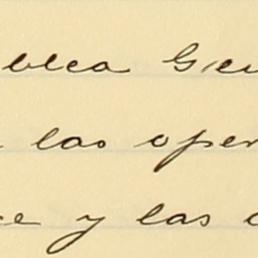 blea Gen
las oper
e y las